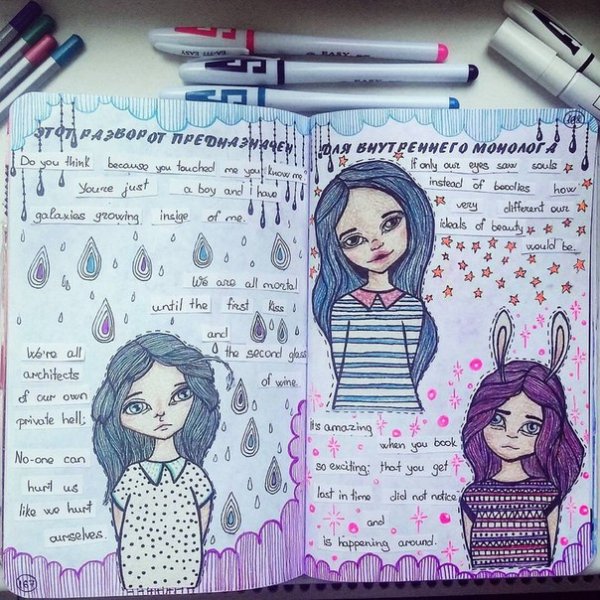 ЭТОТ РАЗВОРОТ ПРЕДНАЗНАЧЕН
Do you think because you touched me you know me
You're just a boy and i have
galaxies growing insige of me.
We are all mortal
until the first kiss
and
the second glass
of wine.
We're all
architects
of our own
private hell.
No-one can
hurt us
like we hurt
ourselves.
167
ДЛЯ ВНУТРЕННЕГО МОНОЛОГА
168
If only our eyes saw souls
instead of boodies how
very different our
ideals of beauty
would be.
It's amazing
when you book
so exciting: that you get
lost in time did not notice
and
is happening around.